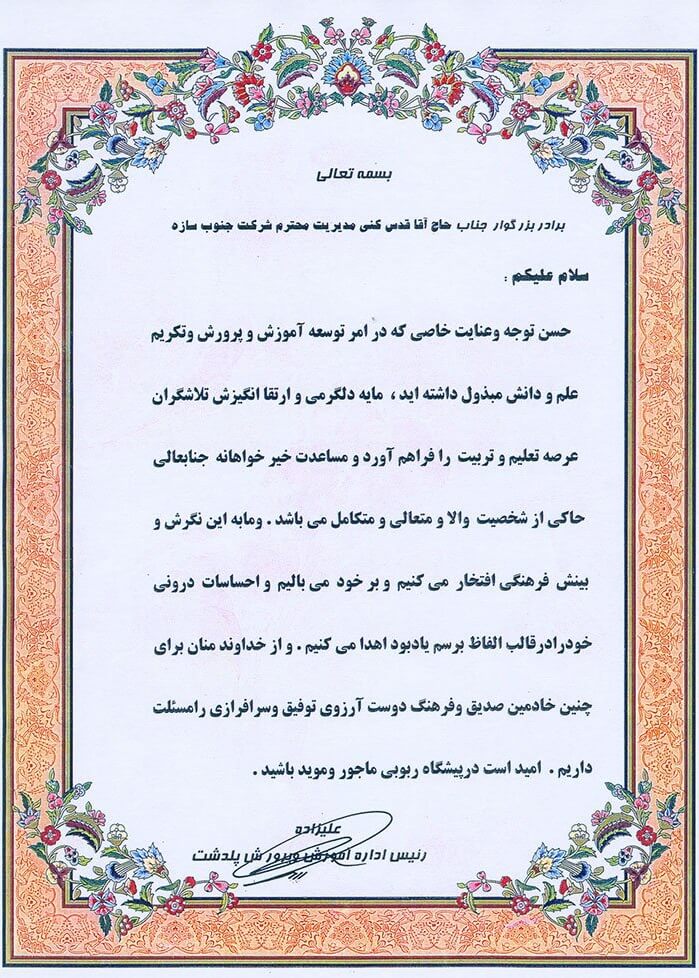 بسمه تعالی
برادر بزرگوار جناب حاج آقا قدس کنی مدیریت محترم شرکت جنوب سازه
سلام علیکم :
حسن توجه وعنایت خاصی که در امر توسعه آموزش و پرورش وتکریم
علم و دانش مبذول داشته اید ، مایه دلگرمی و ارتقا انگیزش تلاشگران
عرصه تعلیم و تربیت را فراهم آورد و مساعدت خیر خواهانه جنابعالی
حاکی از شخصیت والا و متعالی و متکامل می باشد . ومابه این نگرش و
بینش فرهنگی افتخار می کنیم و بر خود می بالیم و احساسات درونی
خودرادرقالب الفاظ برسم یادبود اهدا می کنیم . و از خداوند منان برای
چنین خادمین صدیق وفرهنگ دوست آرزوی توفیق وسرافرازی رامسئلت
داریم . امید است درپیشگاه ربوبی ماجور وموید باشید .
علیزاده
رئیس اداره آموزش وپرورش پلدشت